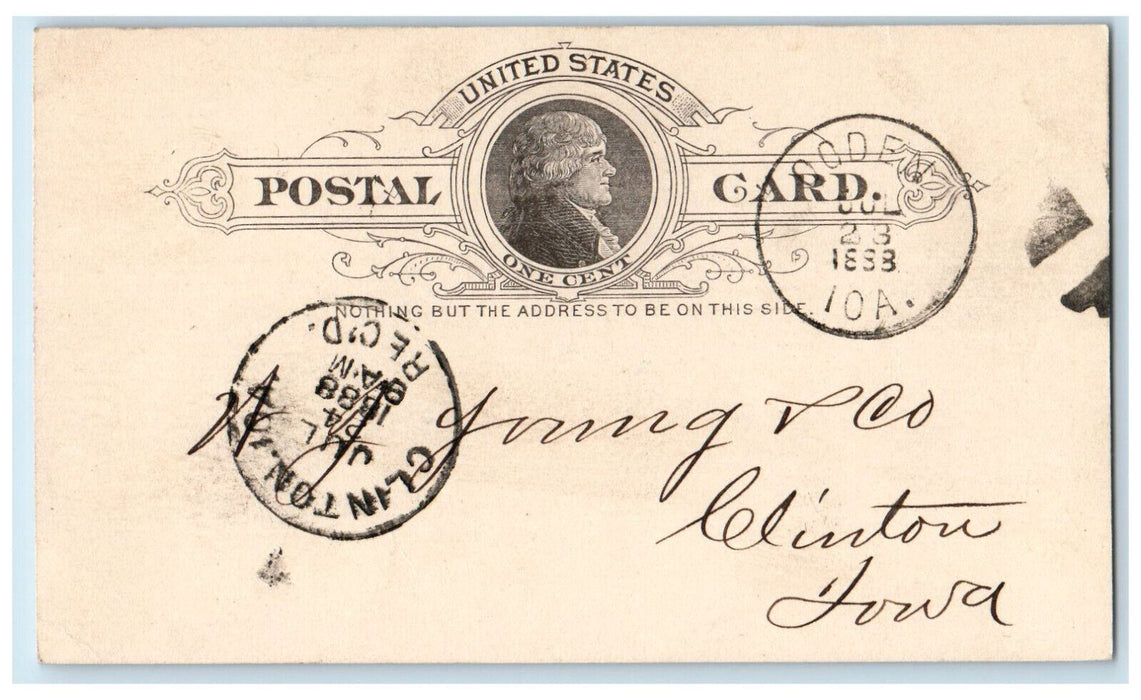 UNITED STATES
POSTAL CARD.
ONE CENT
NOTHING BUT THE ADDRESS TO BE ON THIS SIDE.
JUL
23
1888
IOA.
CLINTON. IOWA
JUL
24
8 AM
1888
REC'D.
W J Young & Co
Clinton
Iowa